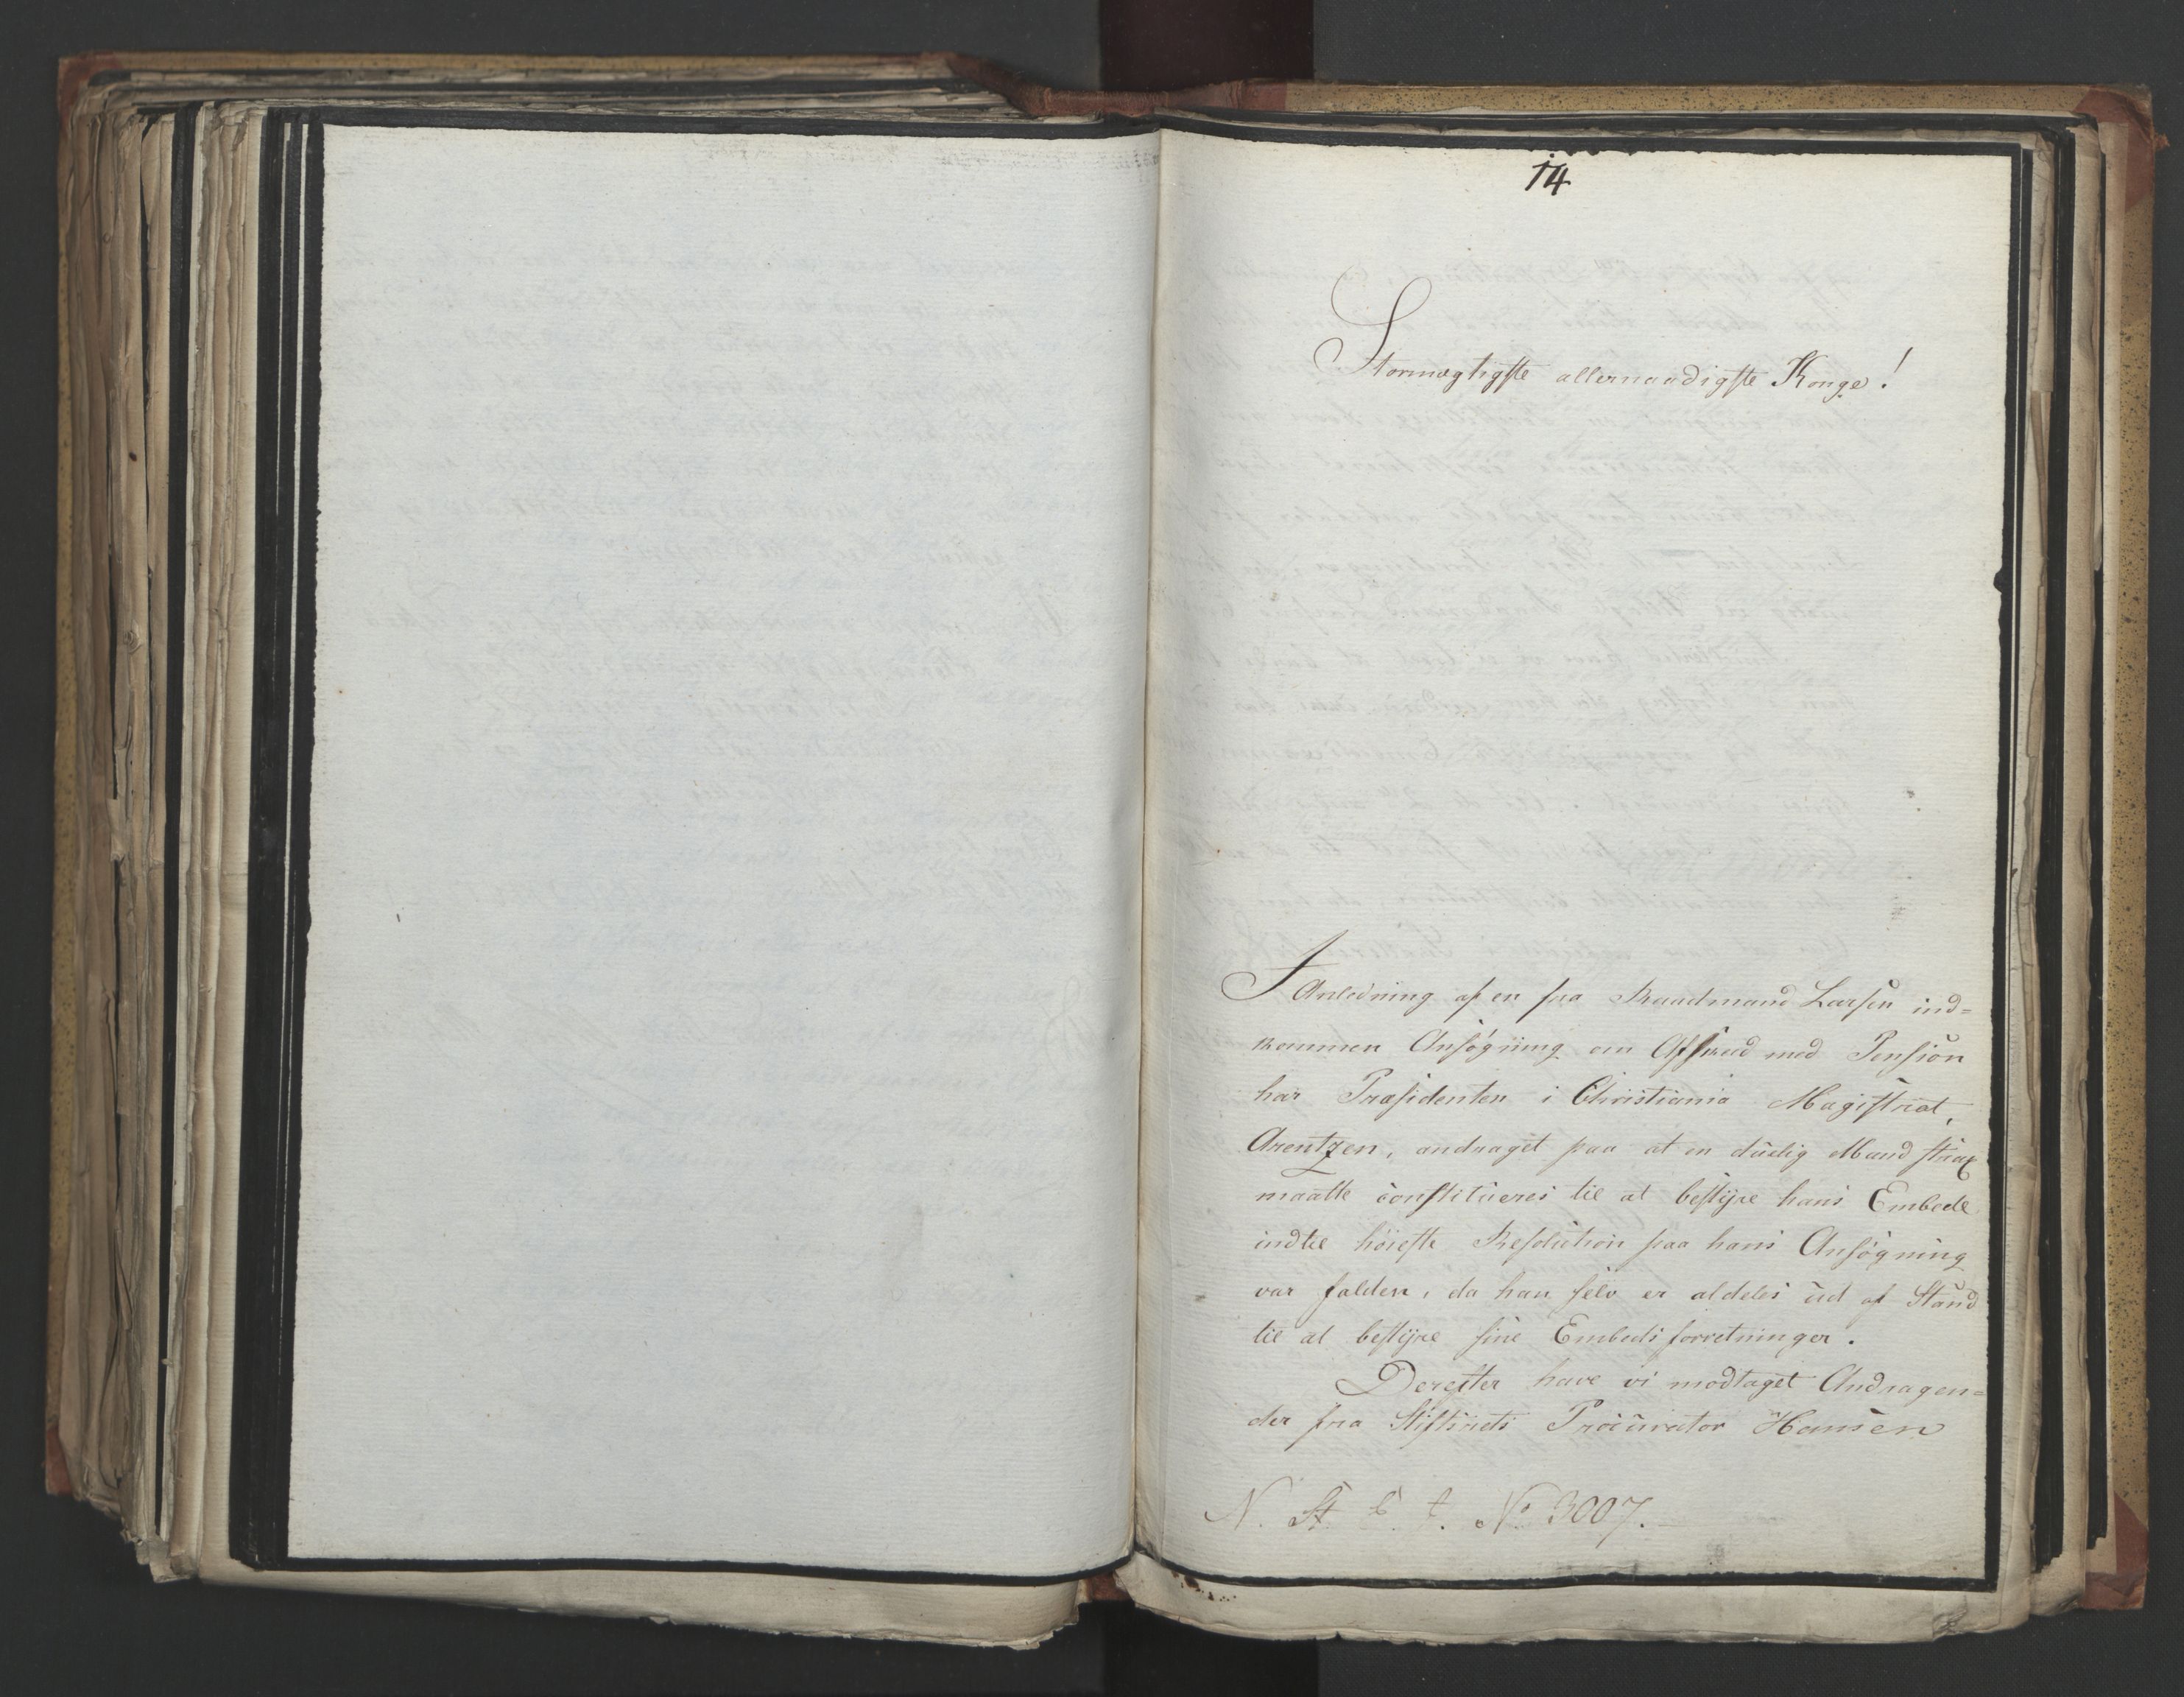 14
Stormægtigste allernaadigste Konge!
I Anledning af en fra Raadmand Larsen ind=
kommen Ansøgning om Afskeed med Pension
har Præsidenten i Christiania Magistrat,
Arentzen, andraget paa at en duelig Mand strax
maatte constitueres til at bestyre hans Embede
indtil høieste Resolution paa hans Ansøgning
var falden, da han selv er aldeles ud af Stand
til at bestyre sine Embedsforretninger.
Derefter have vi modtaget Andragen=
der fra Stiftsrets Procurator Hansen
N. St. C. t. No 3007.